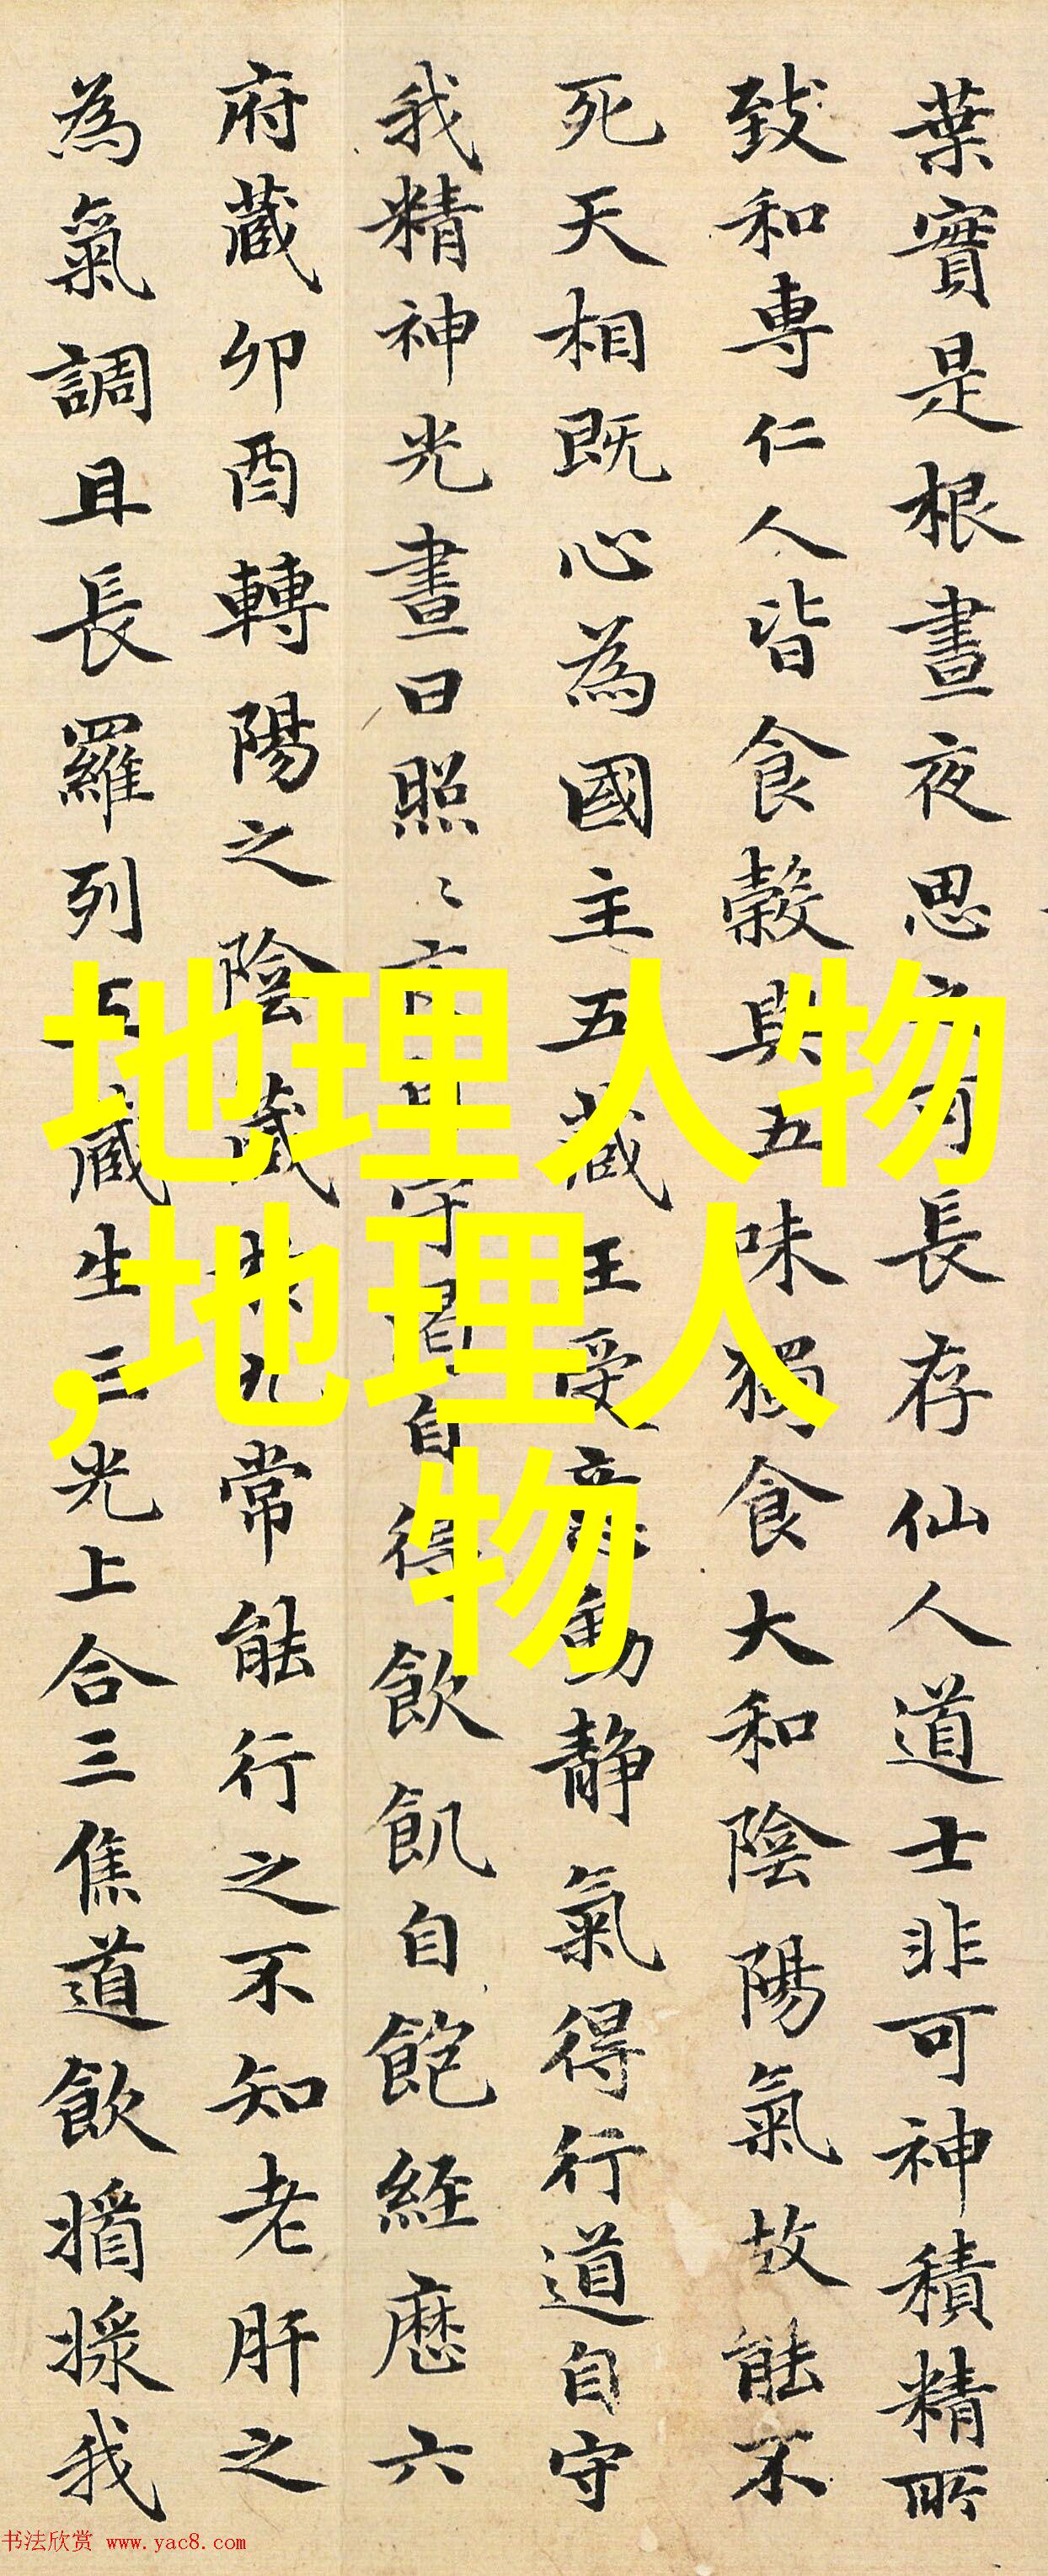 葉實是根晝夜思長存仙人道士非可神積精所
致和專仁人皆食穀與五味獨食大和陰陽氣故能不
死天相既心為國主五藏王受意動静氣得行道自守
我精神光晝日照〻守自得飲飢自飽經歷六
府藏卯酉轉陽之陰藏常能行之不知老肝之
為氣調且長羅列五藏生三光上合三焦道飲㨡㨾我
地理人物
,地理人
物
书法欣赏 www.yac8.com